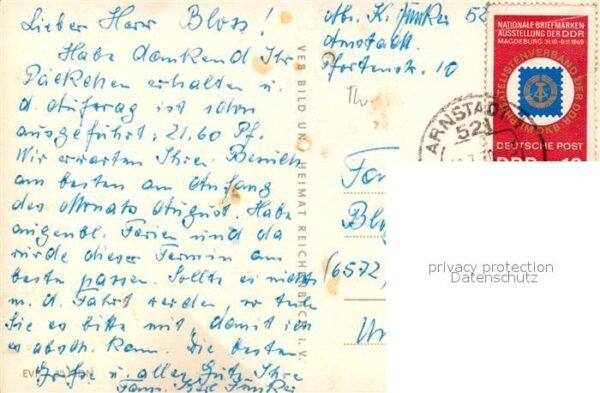 Lieber Herr Bloss!
Habe dankend Ihr
Päckchen erhalten u.
d. Auftrag ist schon
ausgeführt: 21.60 Pf.
Wir erwarten Ihren Besuch
am besten am Anfang
des Monats August. Habe
augenbl. Ferien und da
würde dieser Termin am
beste passen. Sollte es nichts
m. d. Fahrt werden, so teile
Sie es bitte mit, damit ich
es absch. kann. Die besten
Grüße u. alles Gute Ihre
Fam. Karl Junker
Abs. K. Junker 52
Arnstadt.
Pfortenstr. 10
VEB BILD UND HEIMAT REICHENBACH I. V.
NATIONALE BRIEFMARKEN-
AUSSTELLUNG DER DDR
MAGDEBURG 31.10.-9.11.1969
PHILATELISTENVERBAND DER DDR
IM DKB
DEUTSCHE POST
DDR 10
ARNSTADT
521
Fam
Blo
(6572)
privacy protection
Datenschutz